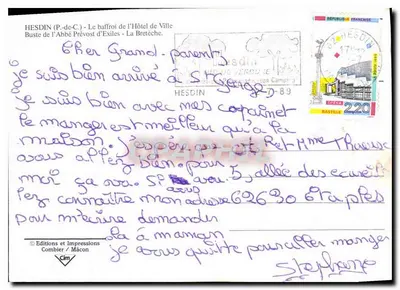 HESDIN (P.-de-C.) - Le baffroi de l'Hôtel de Ville
Buste de l'Abbé Prévost d'Exiles - La Bretèche.
REPUBLIQUE FRANÇAISE
HESDIN
2,20
Cher Grand-parents
je suis bien arrivé à St
je suis bien avec mes copain et
le manger est meilleur qu'a la
maison. j'espère que
vous allez bien. pour
moi ça va. Si vous vou
lez connaître mon adresse
pour m'écrire demander
la à maman
je vous quitte pour aller manger
Stephane
et Mme
5, allée des
62630 étaples
© Editions et Impressions
Combier / Mâcon
Cim